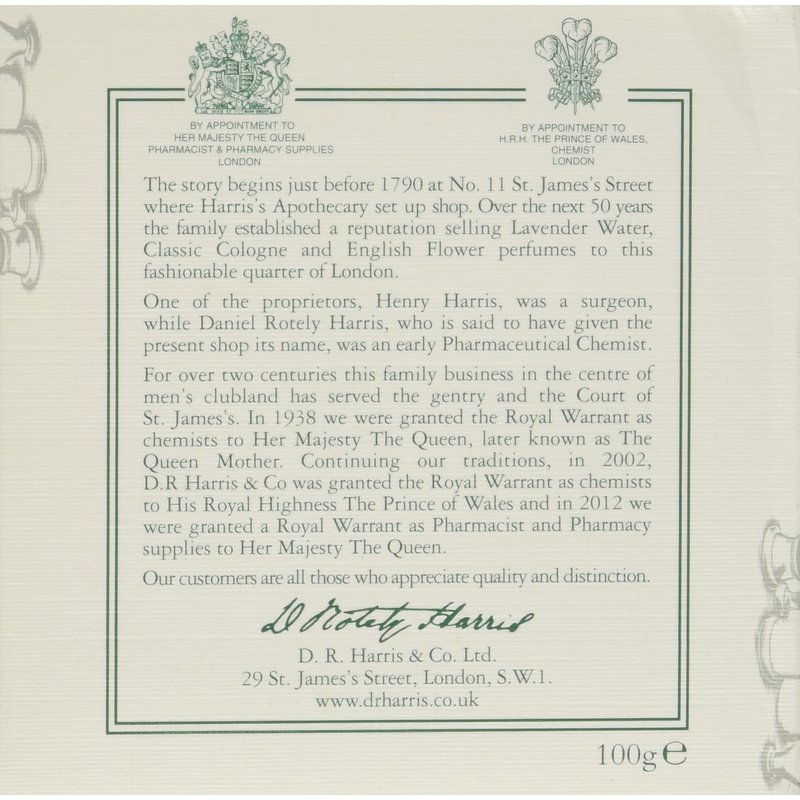 BY APPOINTMENT TO
HER MAJESTY THE QUEEN
PHARMACIST & PHARMACY SUPPLIES
LONDON
BY APPOINTMENT TO
H.R.H. THE PRINCE OF WALES,
CHEMIST
LONDON
The story begins just before 1790 at No. 11 St. James's Street
where Harris's Apothecary set up shop. Over the next 50 years
the family established a reputation selling Lavender Water,
Classic Cologne and English Flower perfumes to this
fashionable quarter of London.
One of the proprietors, Henry Harris, was a surgeon,
while Daniel Rotely Harris, who is said to have given the
present shop its name, was an early Pharmaceutical Chemist.
For over two centuries this family business in the centre of
men's clubland has served the gentry and the Court of
St. James's. In 1938 we were granted the Royal Warrant as
chemists to Her Majesty The Queen, later known as The
Queen Mother. Continuing our traditions, in 2002,
D.R Harris & Co was granted the Royal Warrant as chemists
to His Royal Highness The Prince of Wales and in 2012 we
were granted a Royal Warrant as Pharmacist and Pharmacy
supplies to Her Majesty The Queen.
Our customers are all those who appreciate quality and distinction.
D Rotely Harris
D. R. Harris & Co. Ltd.
29 St. James's Street, London, S.W.1.
www.drharris.co.uk
100g ℮